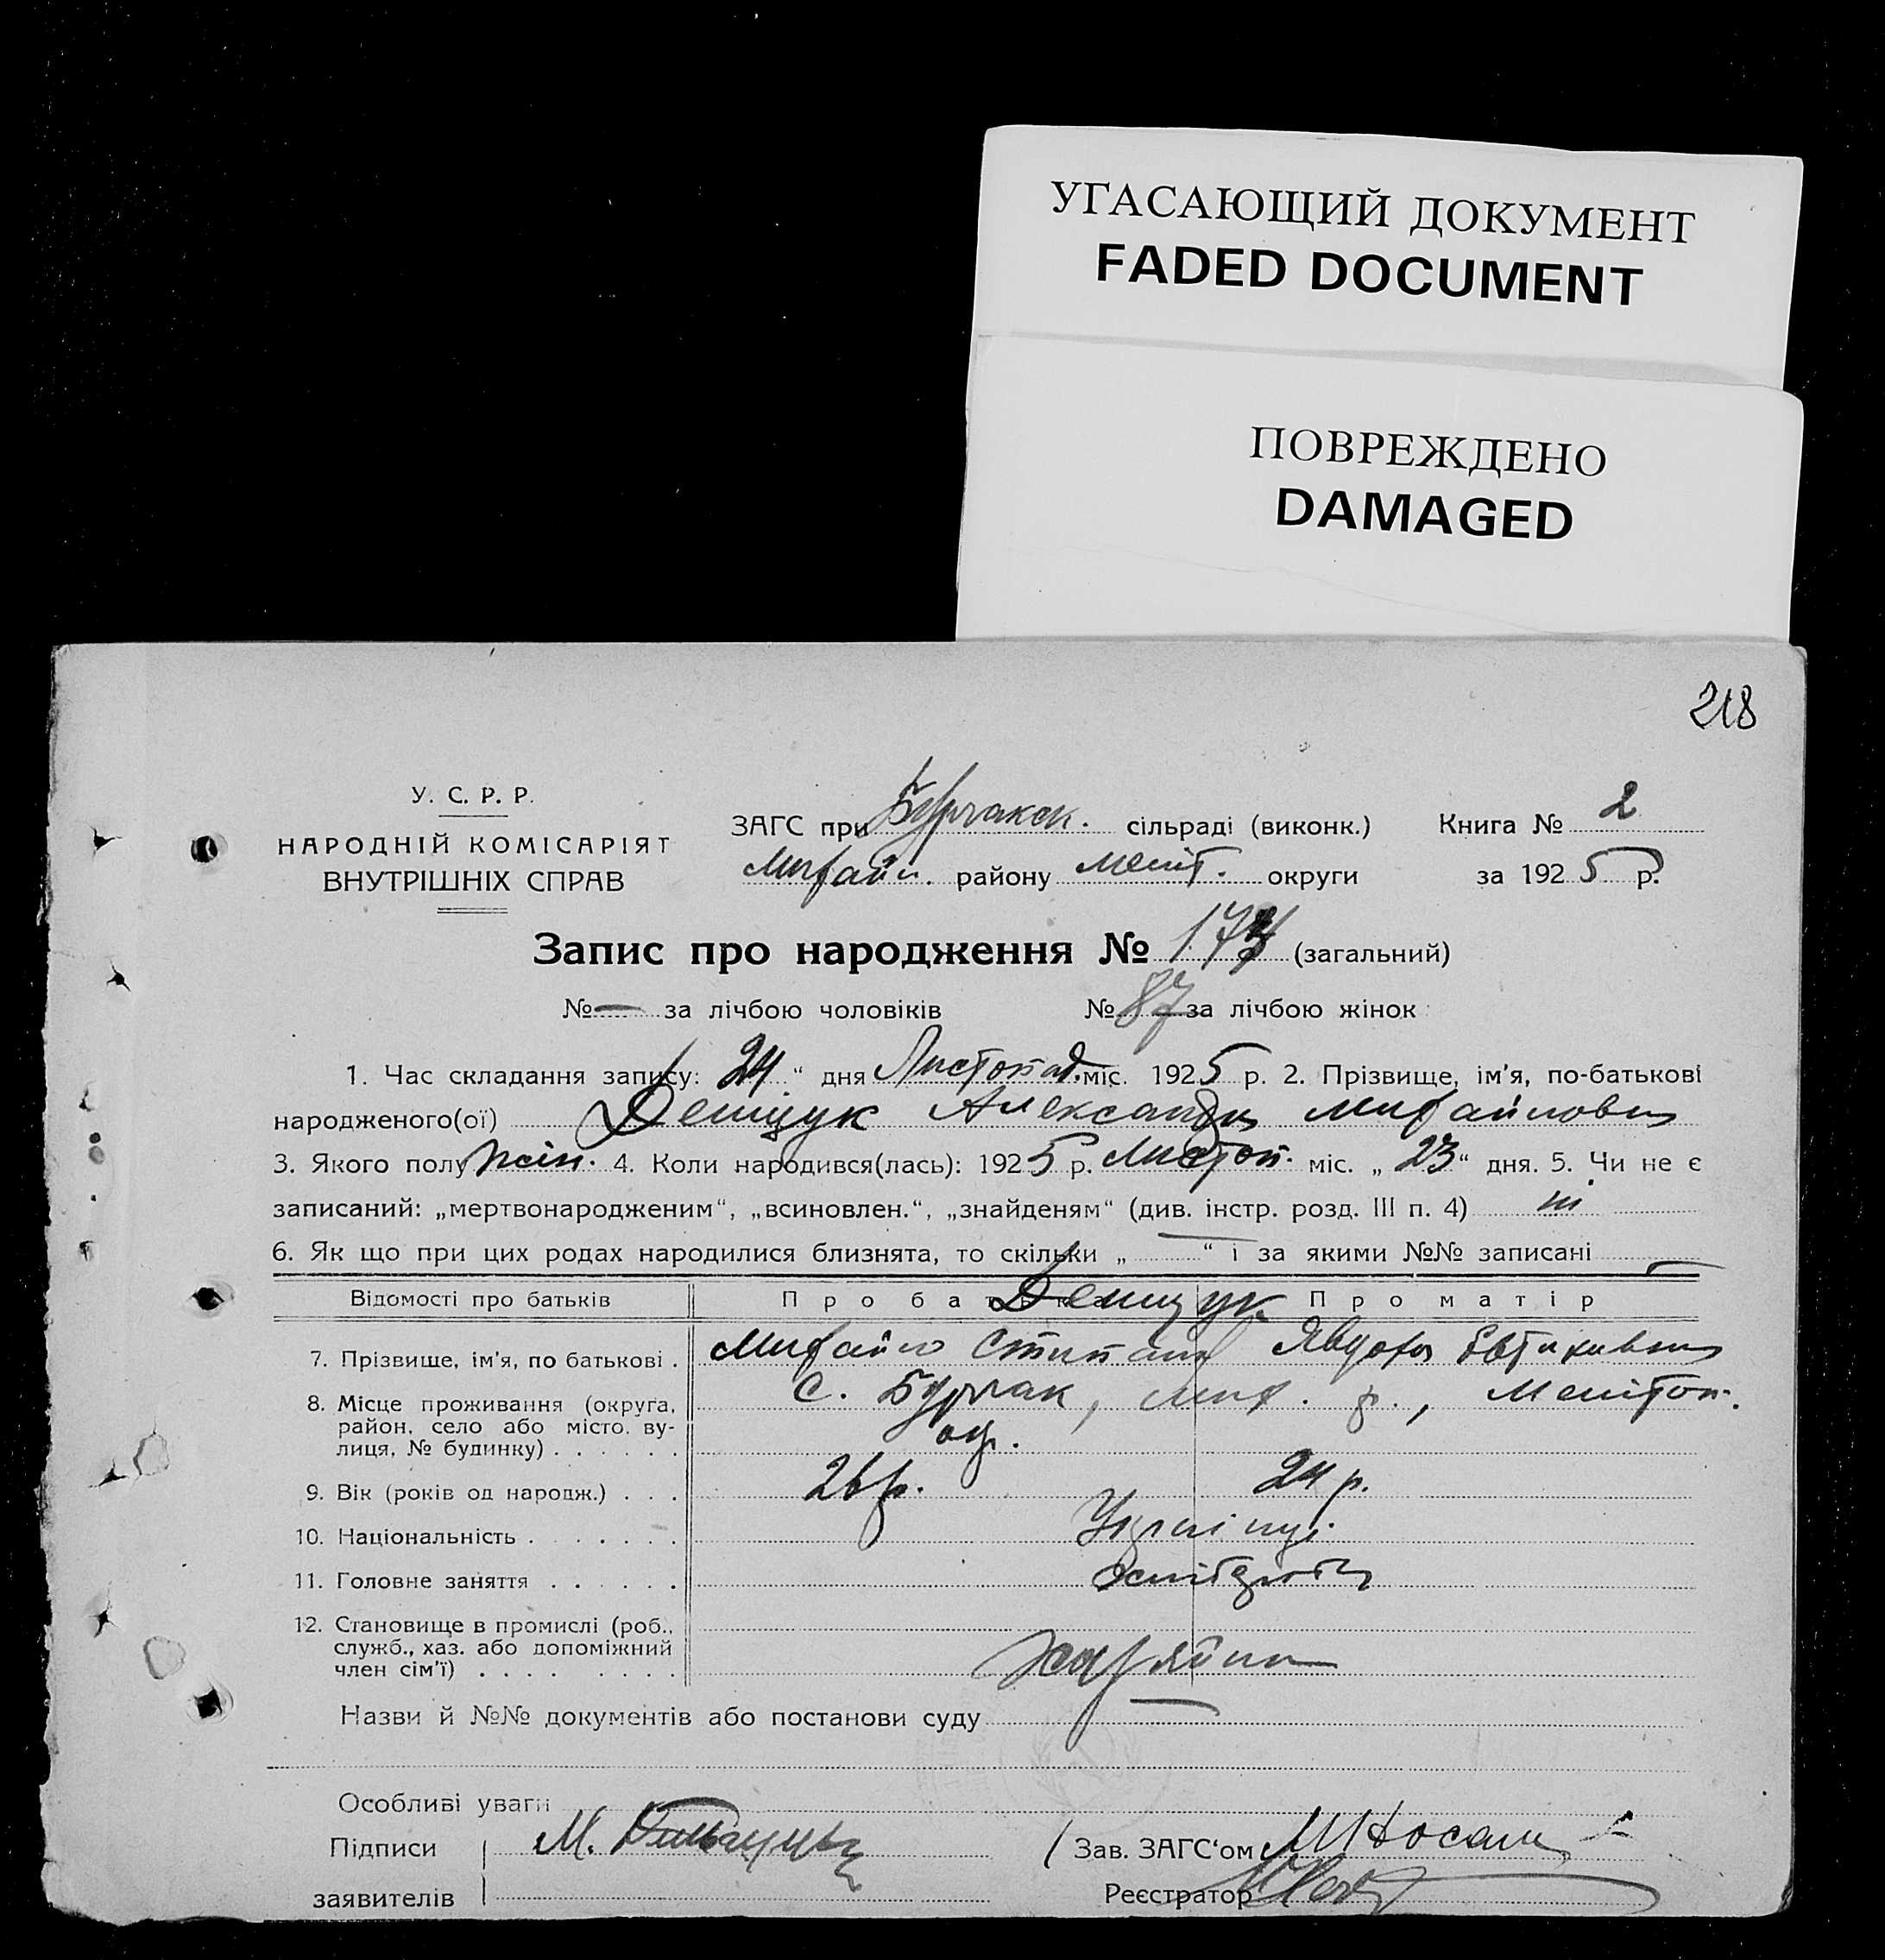 УГАСАЮЩИЙ ДОКУМЕНТ
FADED DOCUMENT
ПОВРЕЖДЕНО
DAMAGED
218
У. С. Р. Р.
НАРОДНІЙ КОМІСАРІЯТ
ВНУТРІШНІХ СПРАВ
ЗАГС при Бурчакск. сільраді (виконк.)
Михайл. району Меліт. округи
Книга № 2
за 1925 р.
Запис про народження № 174 (загальний)
№ — за лічбою чоловіків № 87 за лічбою жінок
1. Час складання запису: 24 “ дня Листопад. міс. 1925 р. 2. Прізвище, ім'я, по-батькові
народженого(ої) Демщук Александра Михайловна
3. Якого полу жін. 4. Коли народився(лась): 1925 р. Листоп. міс. „ 23 “ дня. 5. Чи не є
записаний: „мертвонародженим“, „всиновлен.“, „знайденям“ (див. інстр. розд. III п. 4) ні
6. Як що при цих родах народилися близнята, то скільки „ — “ і за якими №№ записані —
Відомості про батьків Про батька Про матір
Демщук
7. Прізвише, ім'я, по батькові . Михайло Явдоха
8. Місце проживання (округа, с. Бурчак, Мих. р., Мелітоп.
район, село або місто, ву- окр.
лиця, № будинку) . . . . . .
9. Вік (років од народж.) . . . 26 р. 24 р.
10. Національність . . . . . . . Українці
11. Головне заняття . . . . . .
12. Становище в промислі (роб.,
служб., хаз. або допоміжний
член сім'ї) . . . . . . . . .
Назви й №№ документів або постанови суду —
Особливі уваги
Підписи М.
заявителів
Зав. ЗАГС‘ом
Реєстратор